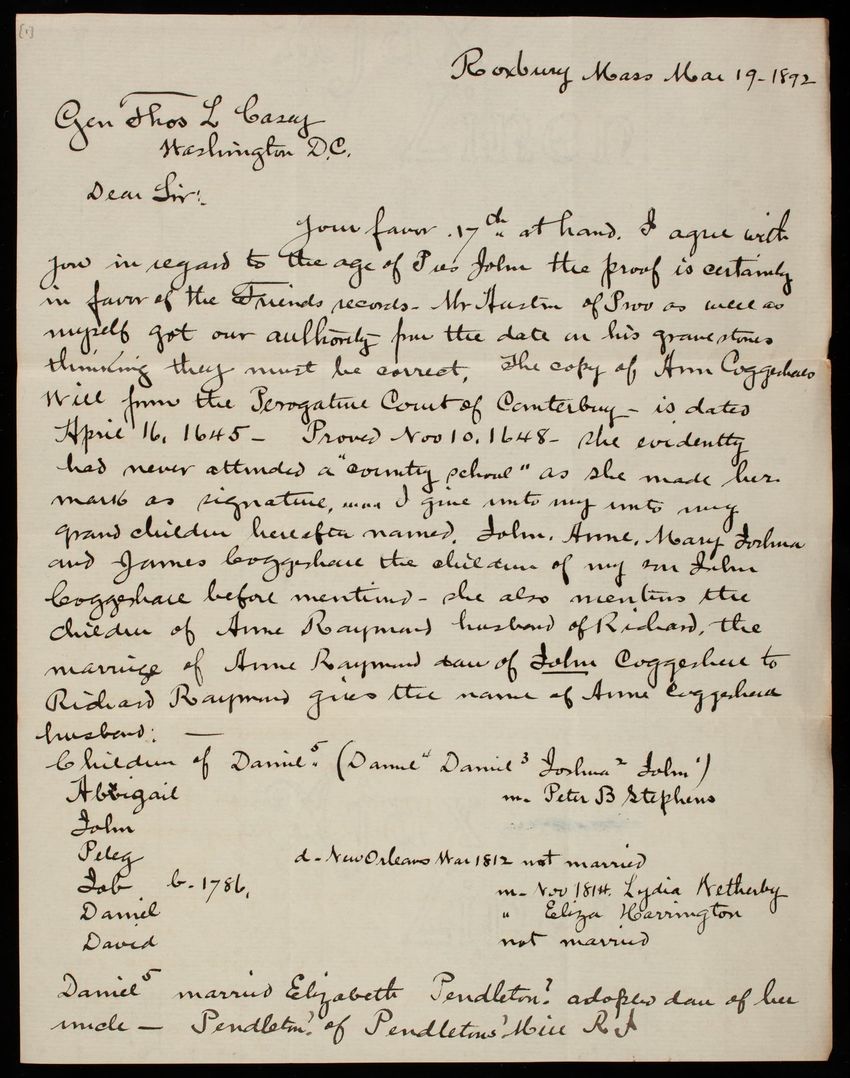 [1]
Roxbury Mass Mar 19-1892
Gen Thos L Casey
Washington D.C.
Dear Sir:
Your favor 17th at hand. I agree with
you in regard to the age of Pres John the proof is certainly
in favor of the Friends records - Mr Austin of Prov as well as
myself got our authority from the date on his gravestones
thinking they must be correct. The copy of Ann Coggeshalls
Will from the Perogative Court of Canterbury - is dated
April 16, 1645 - Proved Nov 10, 1648 - she evidently
had never attended a "country school" as she made her
mark as signature, .... I give unto my unto my
grand children hereafter named, John, Anne, Mary Joshua
and James Coggeshall the children of my son John
Coggeshall before mentiond - she also mentions the
children of Anne Raymond husband of Richard, the
marriage of Anne Raymond dau of John Coggeshall to
Richard Raymond gives the name of Anne Coggeshall
husband: —
Children of Daniel5 (Daniel4 Daniel3 Joshua2 John1)
Abbigail m. Peter B Stephens
John
Peleg d - New Orleans War 1812 not married
Job b - 1786, m - Nov 1814. Lydia Wetherby
Daniel " Eliza Harrington
David not married
Daniel5 married Elizabeth Pendleton? adopted dau of her
uncle — Pendleton? of Pendletons? Hill R I